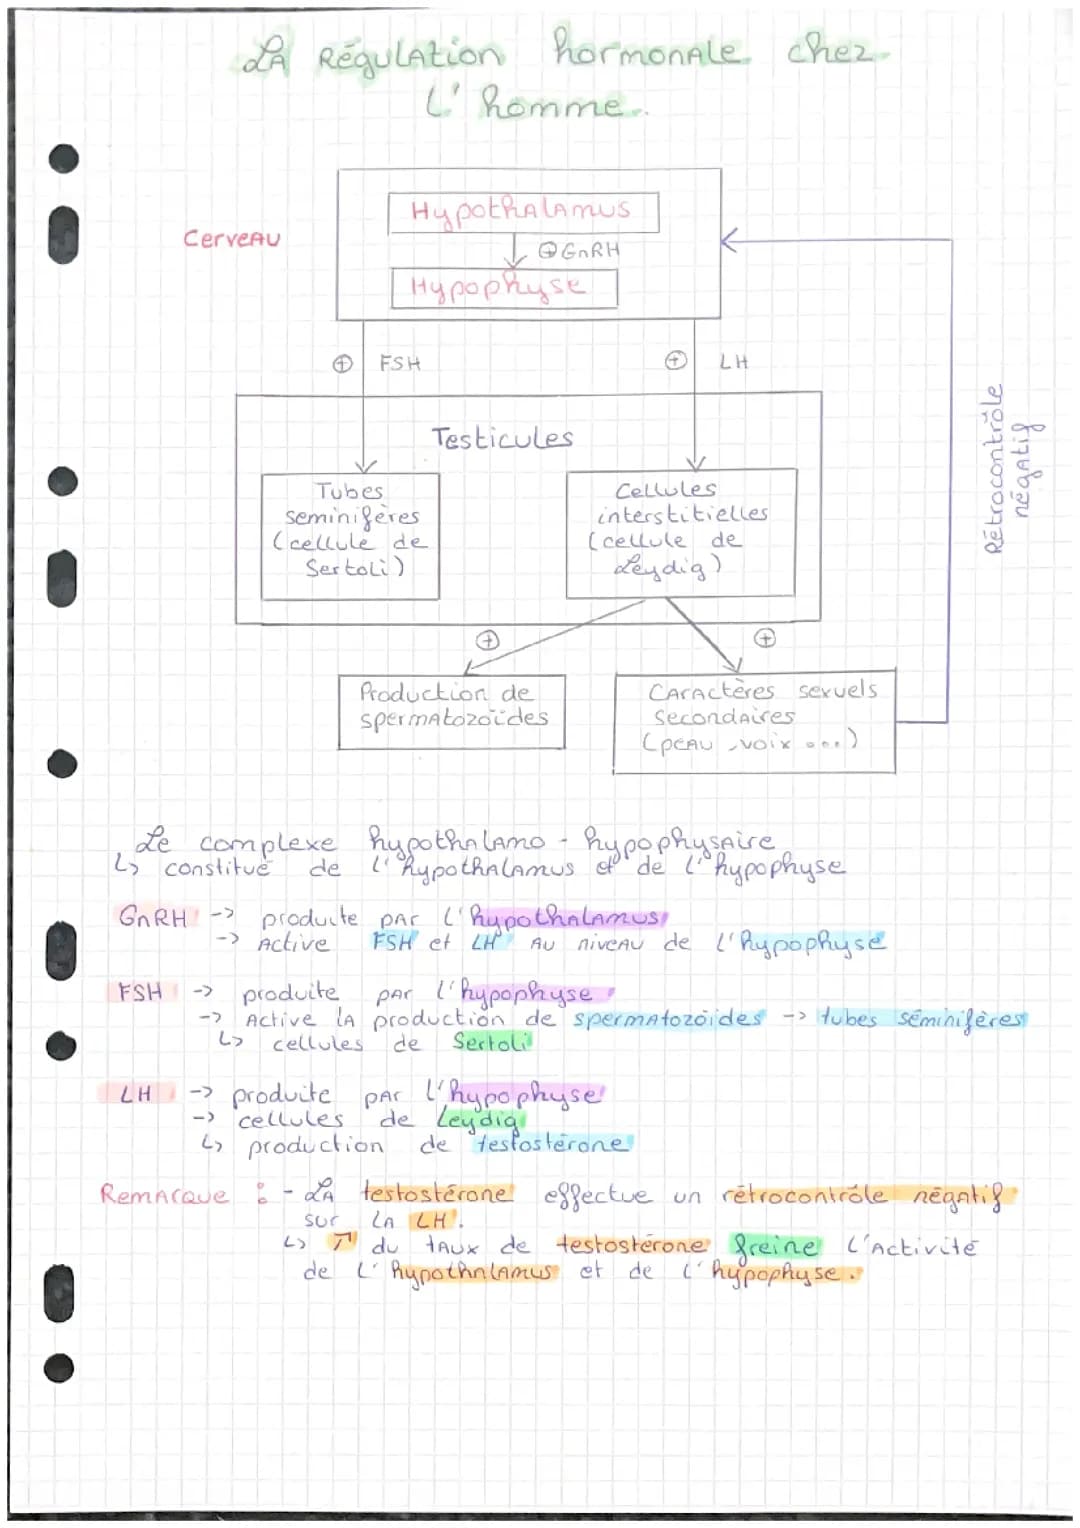 La Régulation hormonale chez
L'homme.
Cerveau
Hypothalamus
⊕ GnRH
Hypophyse
⊕ FSH
⊕ LH
Testicules
Tubes
seminifères
(cellule de
Sertoli)
Cellules
interstitielles
(cellule de
Leydig)
Rétrocontrôle
négatif
⊕
⊕
Production de
spermatozoïdes
Caractères sexuels
Secondaires
(peau, voix ...)
Le complexe hypothalamo - hypophysaire
↳ constitué de l'hypothalamus et de l'hypophyse
GnRH -> produite par l'hypothalamus
-> Active FSH et LH au niveau de l'hypophyse
FSH -> produite par l'hypophyse
-> Active la production de spermatozoïdes -> tubes séminifères
↳ cellules de Sertoli
LH -> produite par l'hypophyse
-> cellules de Leydig
↳ production de testostérone
Remarque : - La testostérone effectue un rétrocontrôle négatif
sur la LH.
↳ ↗ du taux de testostérone freine l'activité
de l'hypothalamus et de l'hypophyse.